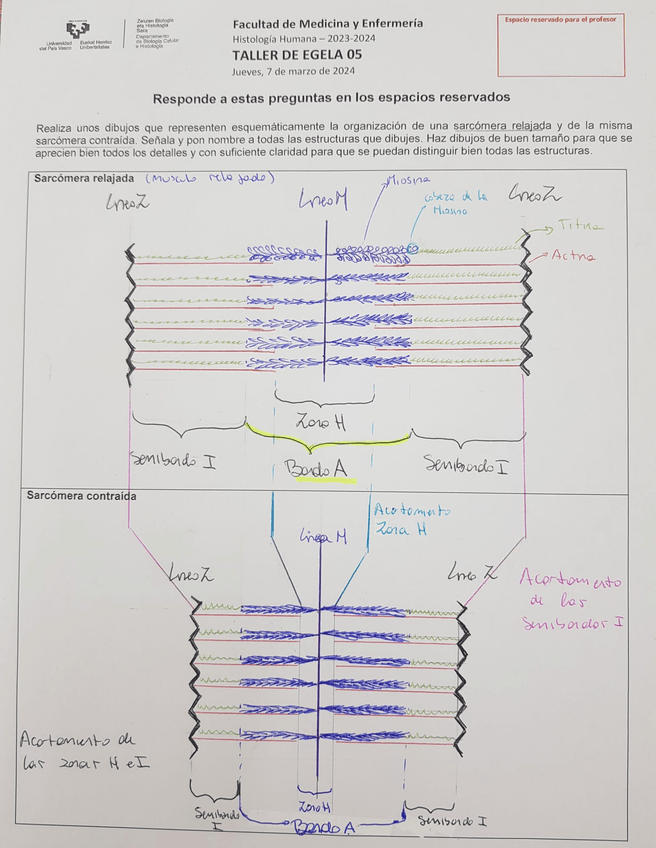 Universidad del País Vasco
Euskal Herriko Unibertsitatea
Zelulen Biologia eta Histologia Saila
Departamento de Biología Celular e Histología
Facultad de Medicina y Enfermería
Histología Humana – 2023-2024
TALLER DE EGELA 05
Jueves, 7 de marzo de 2024
Espacio reservado para el profesor
Responde a estas preguntas en los espacios reservados
Realiza unos dibujos que representen esquemáticamente la organización de una sarcómera relajada y de la misma
sarcómera contraída. Señala y pon nombre a todas las estructuras que dibujes. Haz dibujos de buen tamaño para que se
aprecien bien todos los detalles y con suficiente claridad para que se puedan distinguir bien todas las estructuras.
Sarcómera relajada (Musculo relajado)
Linea Z
Linea M
Miosina
cabeza de la
Miosina
Linea Z
Titina
Actina
Zona H
Semibanda I
Banda A
Semibanda I
Sarcómera contraída
Linea M
Acortamiento
Zona H
Linea Z
Linea Z
Acortamiento
de las
Semibandas I
Acortamiento de
las zonas H e I
Semibanda
I
Zona H
Banda A
Semibanda I